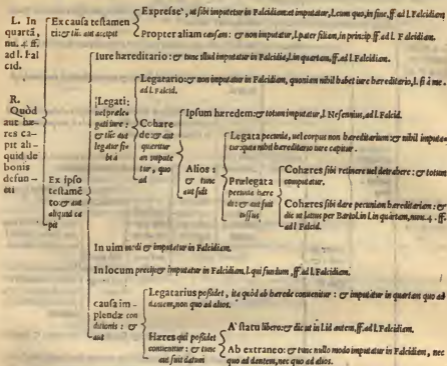 L. In quartā, nu. 4. ff. ad l. Falcid.
R. Quòd aut hæres capit aliquid de bonis defuncti
Ex causa testamenti: & tūc aut accipit
Expresse, ut sibi imputetur in Falcidiam: et imputatur, l. cum quo, in fine, ff. ad l. Falcidiam.
Propter aliam causam: & non imputatur, l. pater filium, in princip. ff. ad l. Falcidiam.
Ex ipso testamēto: & aut aliquid capit
Iure hæreditario: & tunc illud imputatur in Falcidiā, l. in quartam, ff. ad l. Falcidiam.
Legati: uel prælegati iure: & tūc aut legatur sibi à
Legatario: & non imputatur in Falcidiam, quoniam nihil habet iure hæreditario, l. si à me. ad l. Falcid.
Cohærede: & aut quæritur an imputetur, quo ad
Ipsum hæredem: & totum imputatur, l. Nesennius, ad l. Falcid.
Alios: & tunc aut fuit
Legata pecunia, uel corpus non hæreditarium: & nihil imputatur: quia nihil hæreditario iure capitur.
Prælegata pecunia hærede: & aut fuit iussus
Cohæres sibi retinere uel detrahere: & totum computatur.
Cohæres sibi dare pecuniam hæreditariam: & dic ut latius per Bartol. in l. in quartam, num. 4. ff. ad l. Falcid.
In uim modi & imputatur in Falcidiam.
In locum precij: & imputatur in Falcidiam. l. qui fundum, ff. ad l. Falcidiam.
causa implendæ conditionis: & aut
Legatarius possidet, ita quòd ab hærede conuenitur: & imputatur in quartam quo ad dantem, non quo ad alios.
Hæres qui possidet conuenitur: & tunc aut fuit datum
A' statu libero: & dic ut in l. id autem, ff. ad l. Falcidiam.
Ab extraneo: & tunc nullo modo imputatur in Falcidiam, nec quo ad dantem, nec quo ad alios.